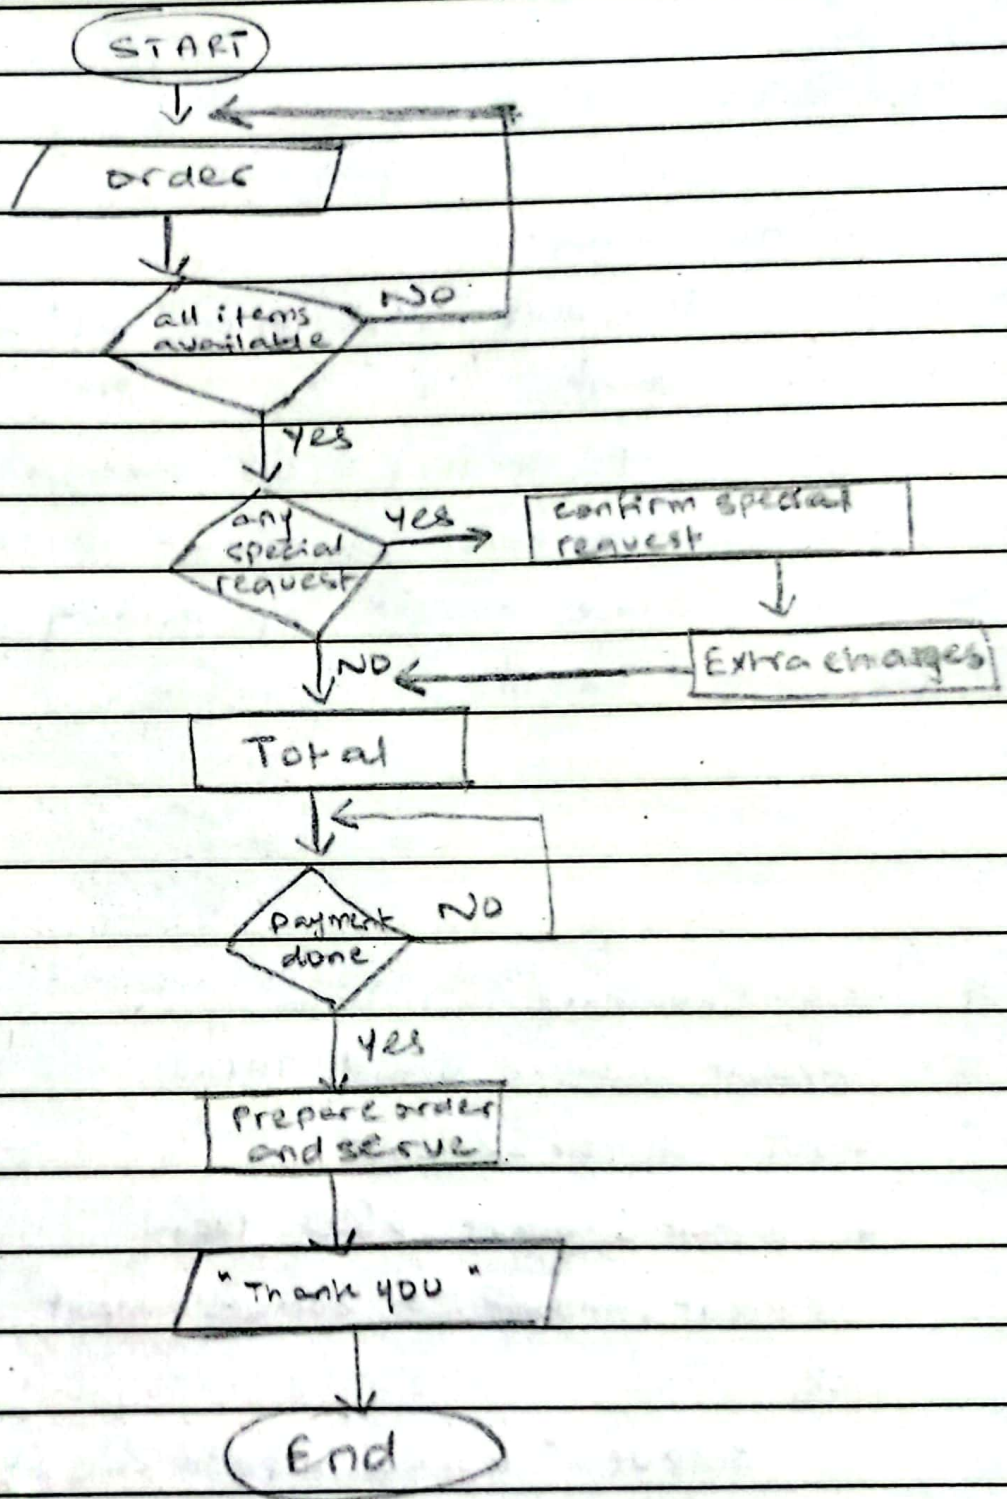 START
order
all items
available
NO
yes
any
special
request
yes
confirm special
request
Extra charges
NO
Total
payment
done
NO
yes
Prepare order
and serve
"Thank you"
End